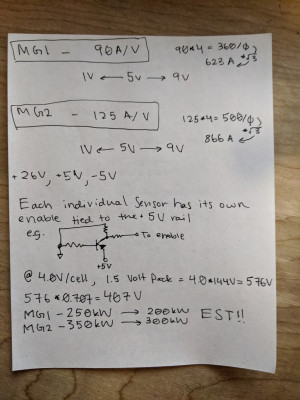 MG1 - 90A/V
90*4 = 360/φ
*√3
623 A
1V ← 5V → 9V
MG2 - 125 A/V
125*4 = 500/φ
*√3
866 A
1V ← 5V → 9V
+26V, +5V, -5V
Each individual sensor has its own
enable tied to the +5V rail
e.g.
To enable
+5V
@ 4.0V/cell, 1.5 Volt Pack = 4.0*144V = 576V
576 * 0.707 = 407V
MG1 - 250kW → 200kW
MG2 - 350kW → 300kW
EST!!